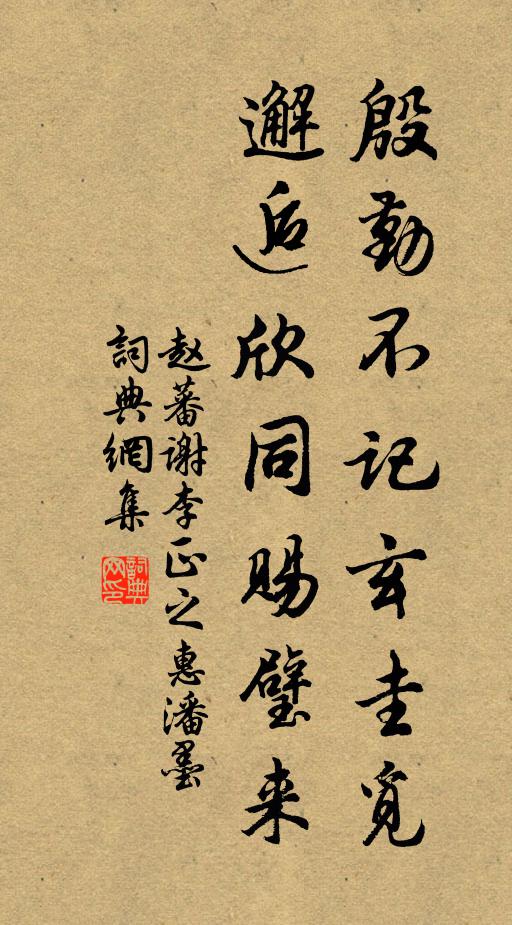 殷勤不记玄圭觅
邂逅欣同赐璧来
赵蕃谢李正之惠潘墨
詞典網集
詞典網印